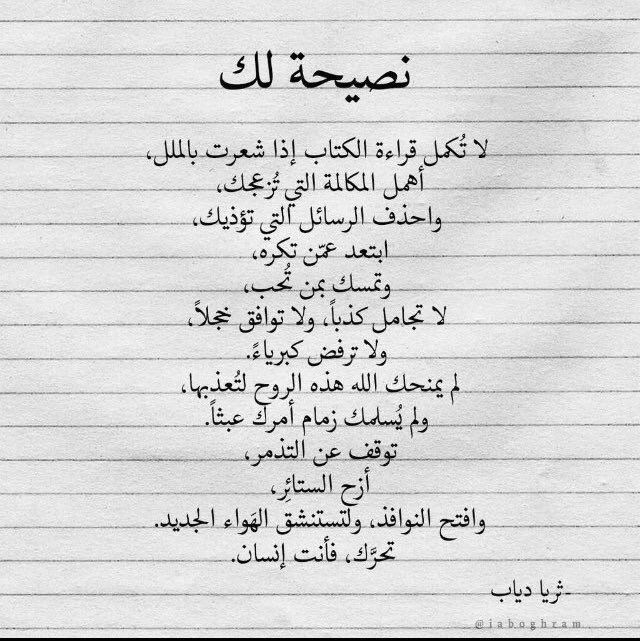 نصيحة لك
لا تُكمل قراءة الكتاب إذا شعرتَ بالملل،
أهمل المكالمة التي تُزعجك،
واحذف الرسائل التي تؤذيك،
ابتعد عمّن تكره،
وتمسك بمن تُحب،
لا تجامل كذباً، ولا توافق خجلاً،
ولا ترفض كبرياءً.
لم يمنحك الله هذه الروح لتُعذبها،
ولم يُسلمك زمام أمرك عبثاً.
توقف عن التذمر،
أزح الستائِر،
وافتح النوافذ، ولتستنشق الهَواء الجديد.
تحرَّك، فأنت إنسان.
-ثريا دياب
@iaboghram